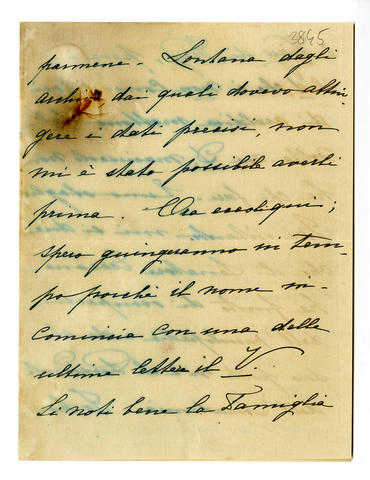 3845
parmene. Lontana dagli
archivi dai quali dovevo attin-
gere i dati precisi, non
mi è stato possibile averli
prima. Ora eccoli qui;
spero giungeranno in tem-
po perchè il nome in-
comincia con una delle
ultime lettere il V.
Si noti bene la Famiglia